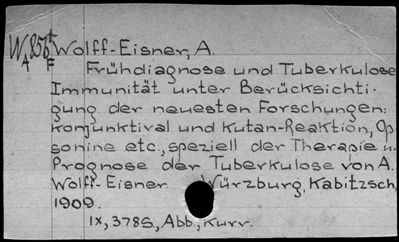 W,856 Wolff-Eisner, A.
A F
Frühdiagnose und Tuberkulose
Immunität unter Berücksichti-
gung der neuesten Forschungen:
Konjunktival und Kutan-Reaktion, Op
sonine etc., speziell der Therapie u.
Prognose der Tuberkulose von A.
Wolff-Eisner Würzburg, Kabitzsch,
1909.
IX, 378S, Abb., Kurv.